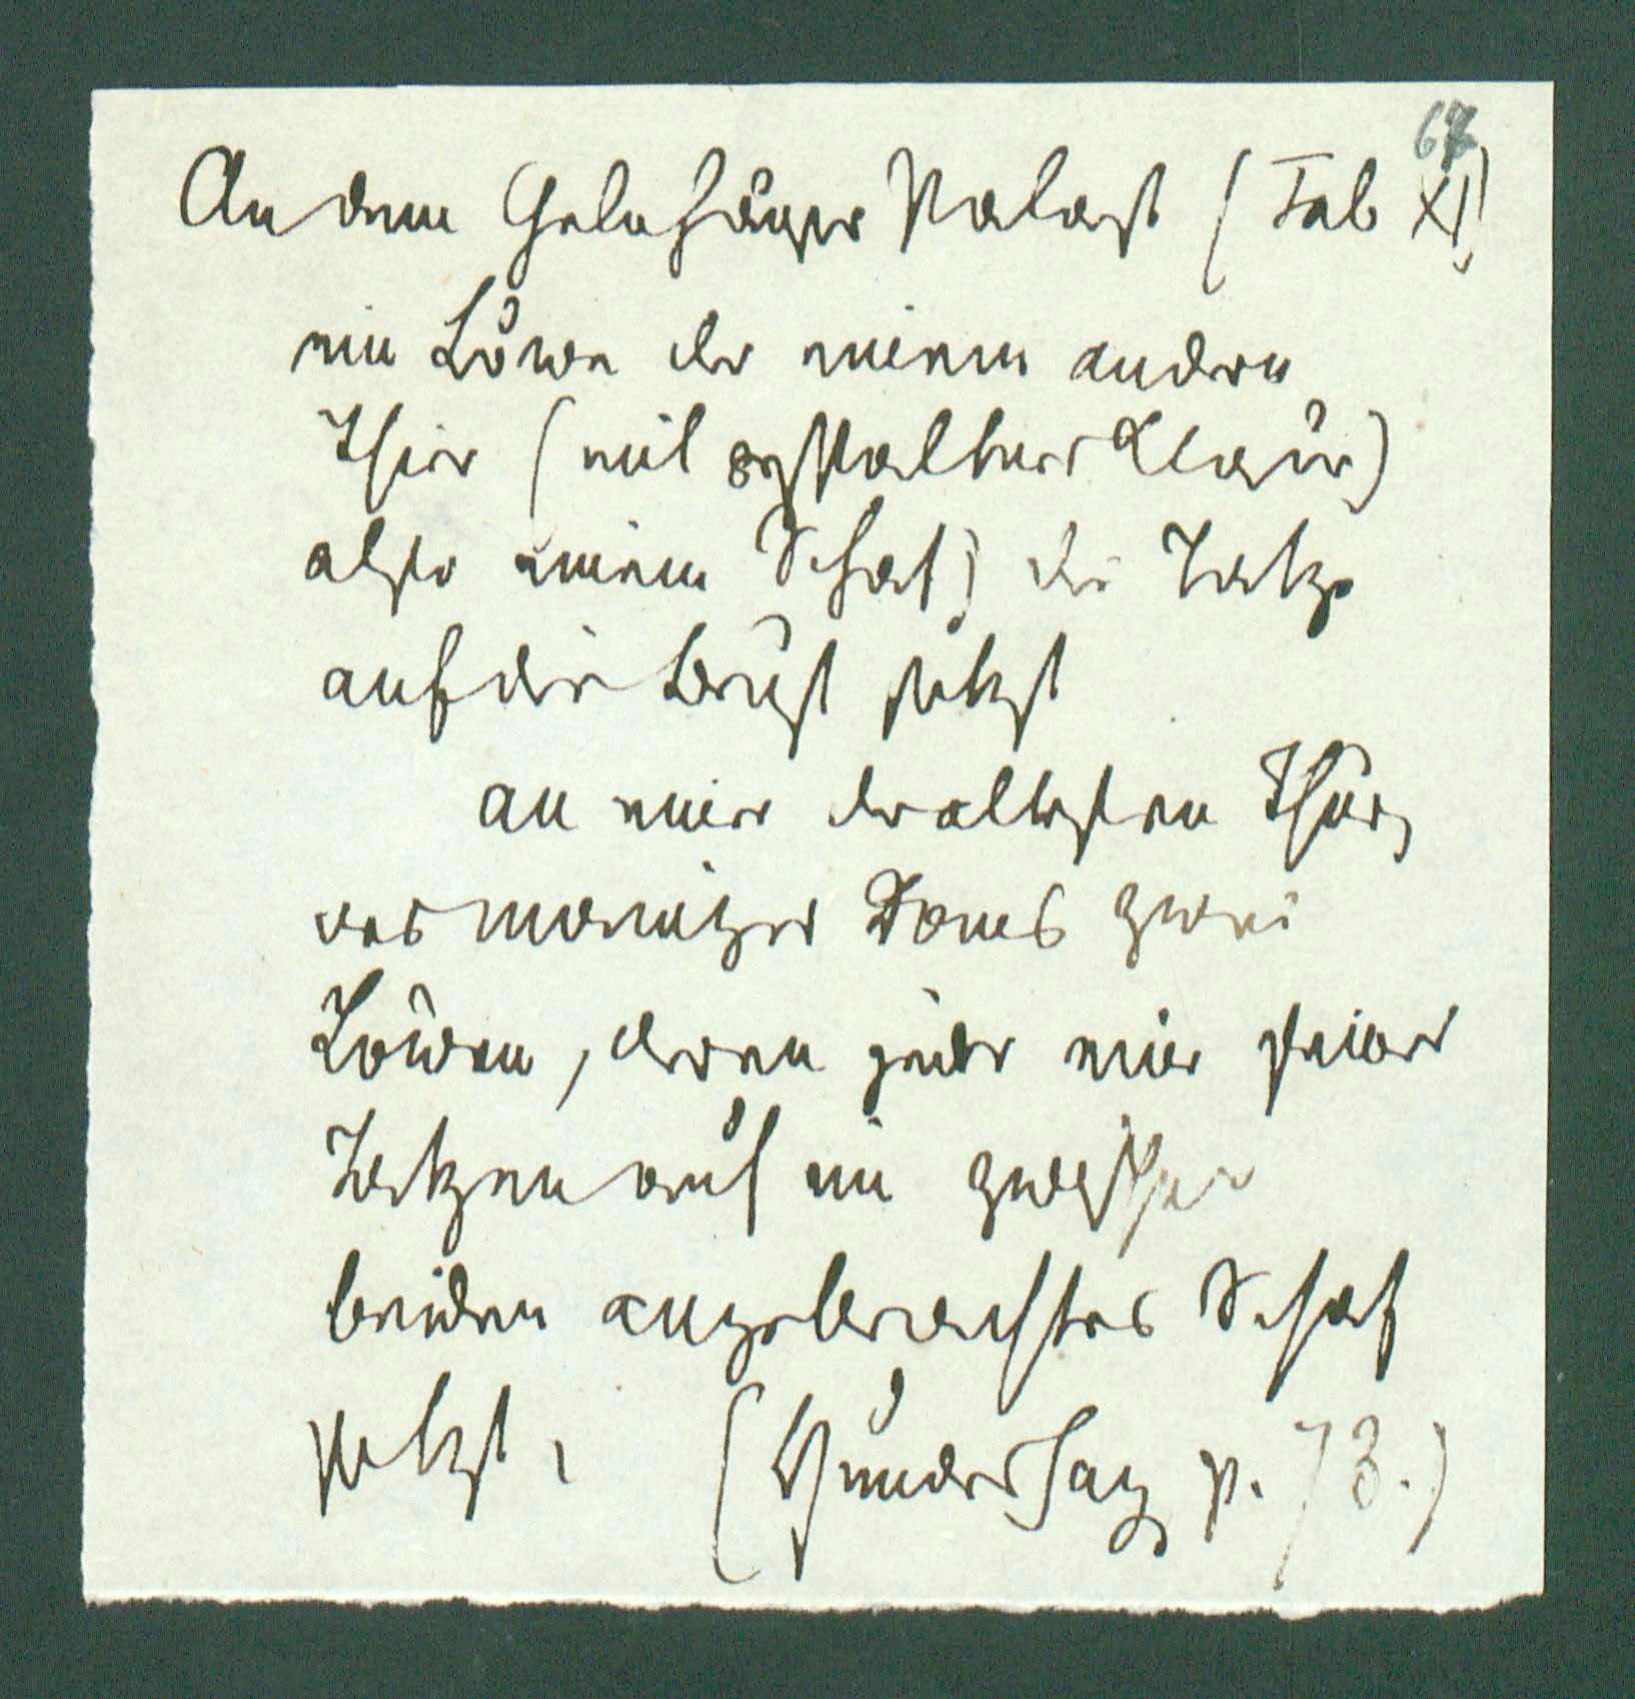 67
An dem Gelnhäuser Palast (Tab XI)
ein Löwe der einem andern
Thier (mit gespaltener Klaue)
also einem Schaf) die Tatze
auf die Brust setzt
an einer der ältesten Thüren
des Mainzer Doms zwei
Löwen, deren jeder eine seiner
Tatzen auf ein zwischen
beiden angebrachtes Schaf
setzt. (Hundeshag p. 73.)